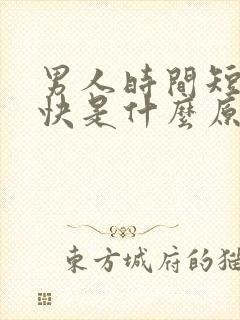 男人時間短
快是什麼原
東方城府的猫